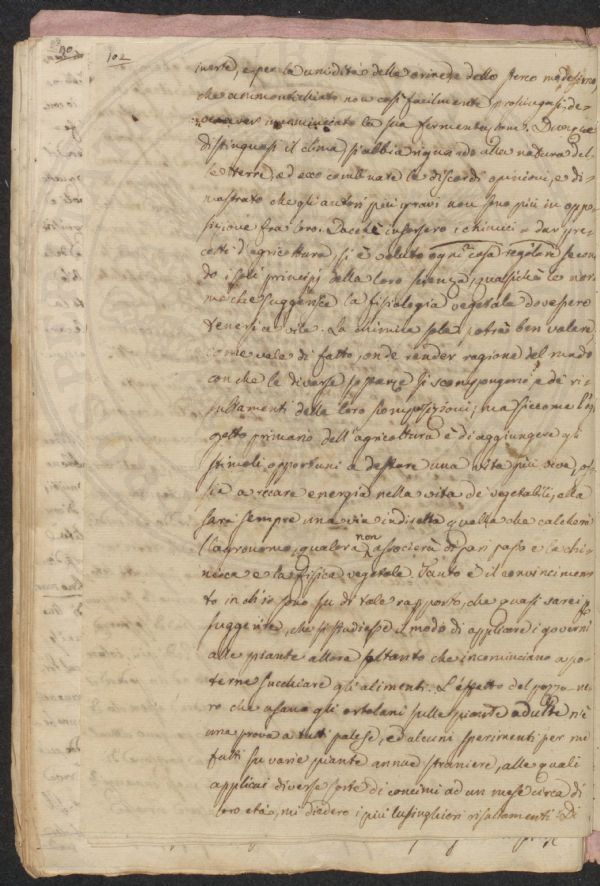 30
102
inerte, e per la umidità delle orine, e dello sterco medesimo,
che ammonticchiato non così facilmente prosciugasi, de-
ve aver incominciato la sua fermentazione. Dunque
distinguasi il clima, si abbia riguardo alla natura del-
le terre, ed ecco combinate le discordi opinioni, e di-
mostrato che gli autori più gravi non sono più in oppo-
sizione fra loro. Dacchè insorsero i chimici a dar pre-
cetti d'agricoltura, si è voluto ogni cosa regolare secon-
do i soli principj della loro scienza, quasichè le nor-
me che suggerisce la fisiologia vegetale dovessero
tenersi a vile. La chimica sola potrà ben valere,
come vale di fatto, onde render ragione del modo
con che le diverse sostanze si scompongono, e dei ri-
sultamenti delle loro composizioni; ma siccome l'og-
getto primario dell'agricoltura è di aggiungere gli
stimoli opportuni a destare una vita più viva, os-
sia a recare energia nella vita de' vegetabili, ella
sarà sempre una via indiretta quella che calcherà
l'agronomo, qualora non associerà di pari passo e la chi-
mica e la fisica vegetale. Tanto è il convincimen-
to in ch'io sono su di tale rapporto, che quasi sarei per
suggerire, che si studiasse il modo di appliare i governi
alle piante allora soltanto che incominciano a po-
terne succhiare gli alimenti. L'effetto del pozzo ne-
ro che usano gli ortolani sulle piante adulte n'è
una prova a tutti palese, ed alcuni sperimenti per me
fatti su varie piante annue straniere, alle quali
applicai diverse sorte di concimi ad un mese circa di
loro età, mi diedero i più lusinghieri risultamenti. Di